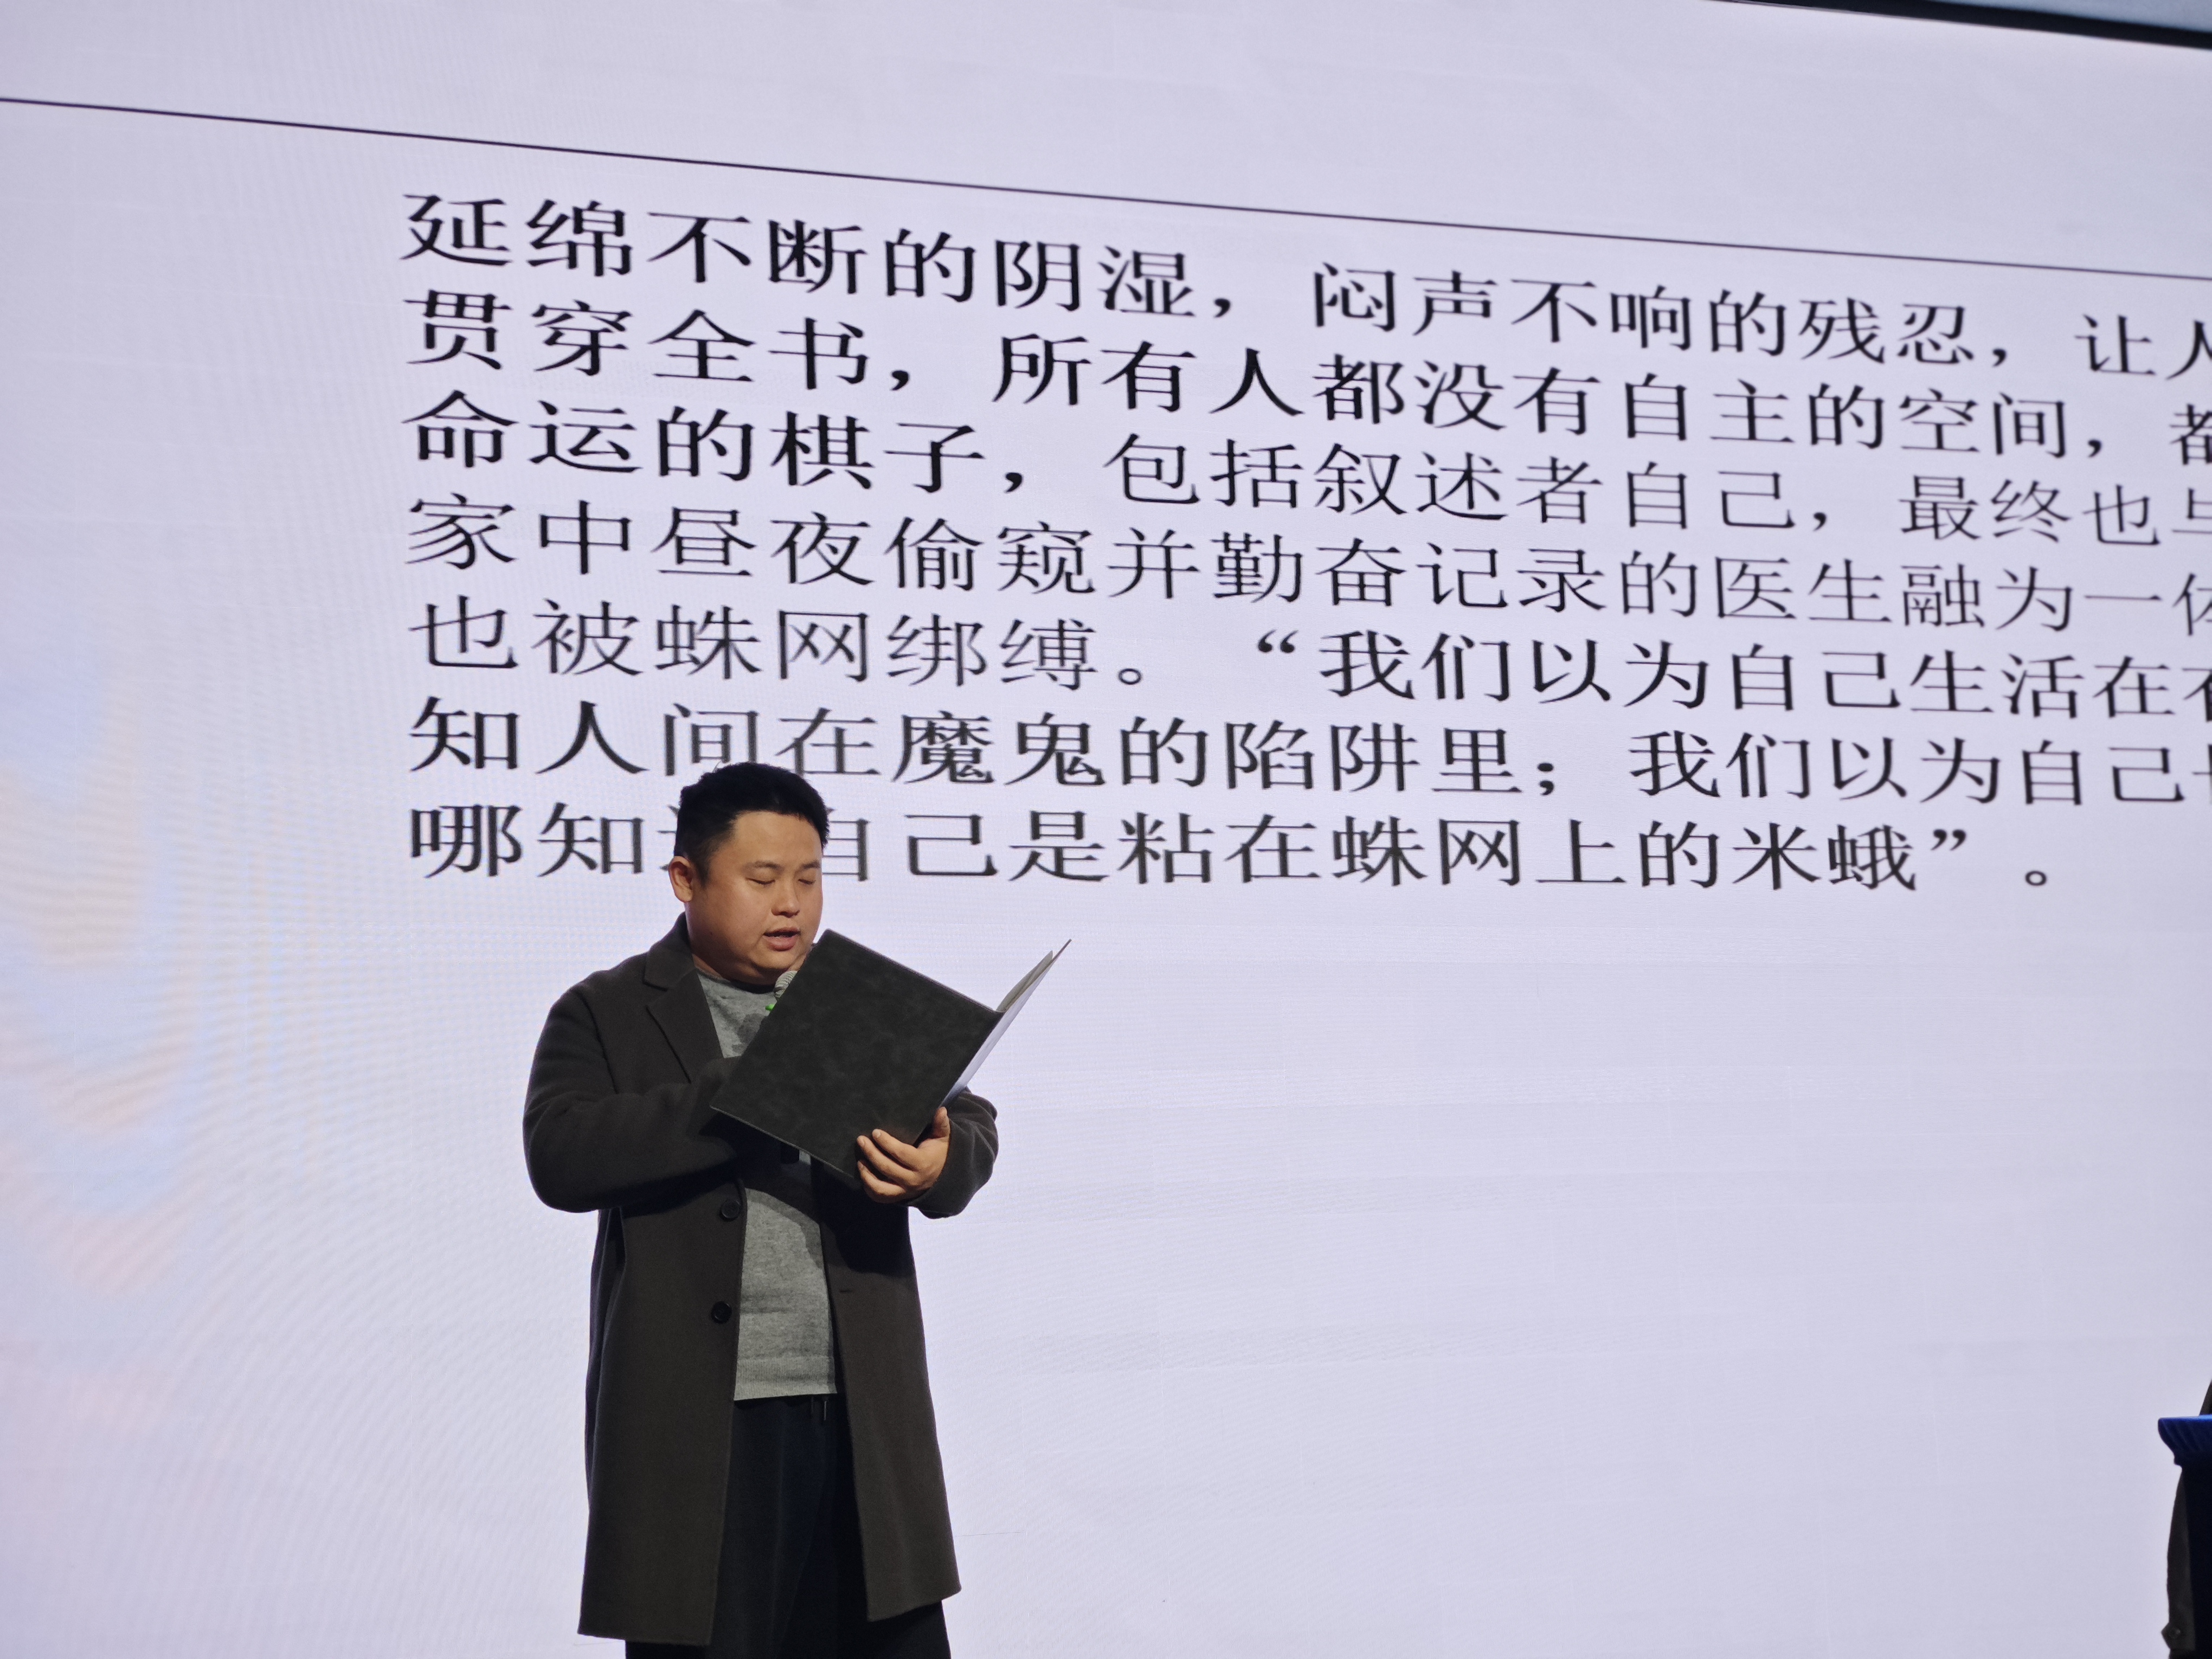 延绵不断的阴湿，闷声不响的残忍，让人
贯穿全书，所有人都没有自主的空间，都
命运的棋子，包括叙述者自己，最终也与
家中昼夜偷窥并勤奋记录的医生融为一体
也被蛛网绑缚。“我们以为自己生活在
知人间在魔鬼的陷阱里；我们以为自己
哪知 自己是粘在蛛网上的米蛾”。